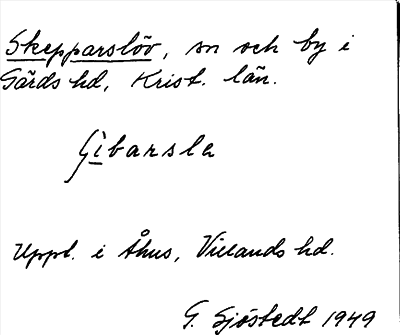 Skepparslöv, sn och by i
Gärds hd, Krist. län.
Uppt. i Åhus, Villands hd.
G. Sjöstedt 1949